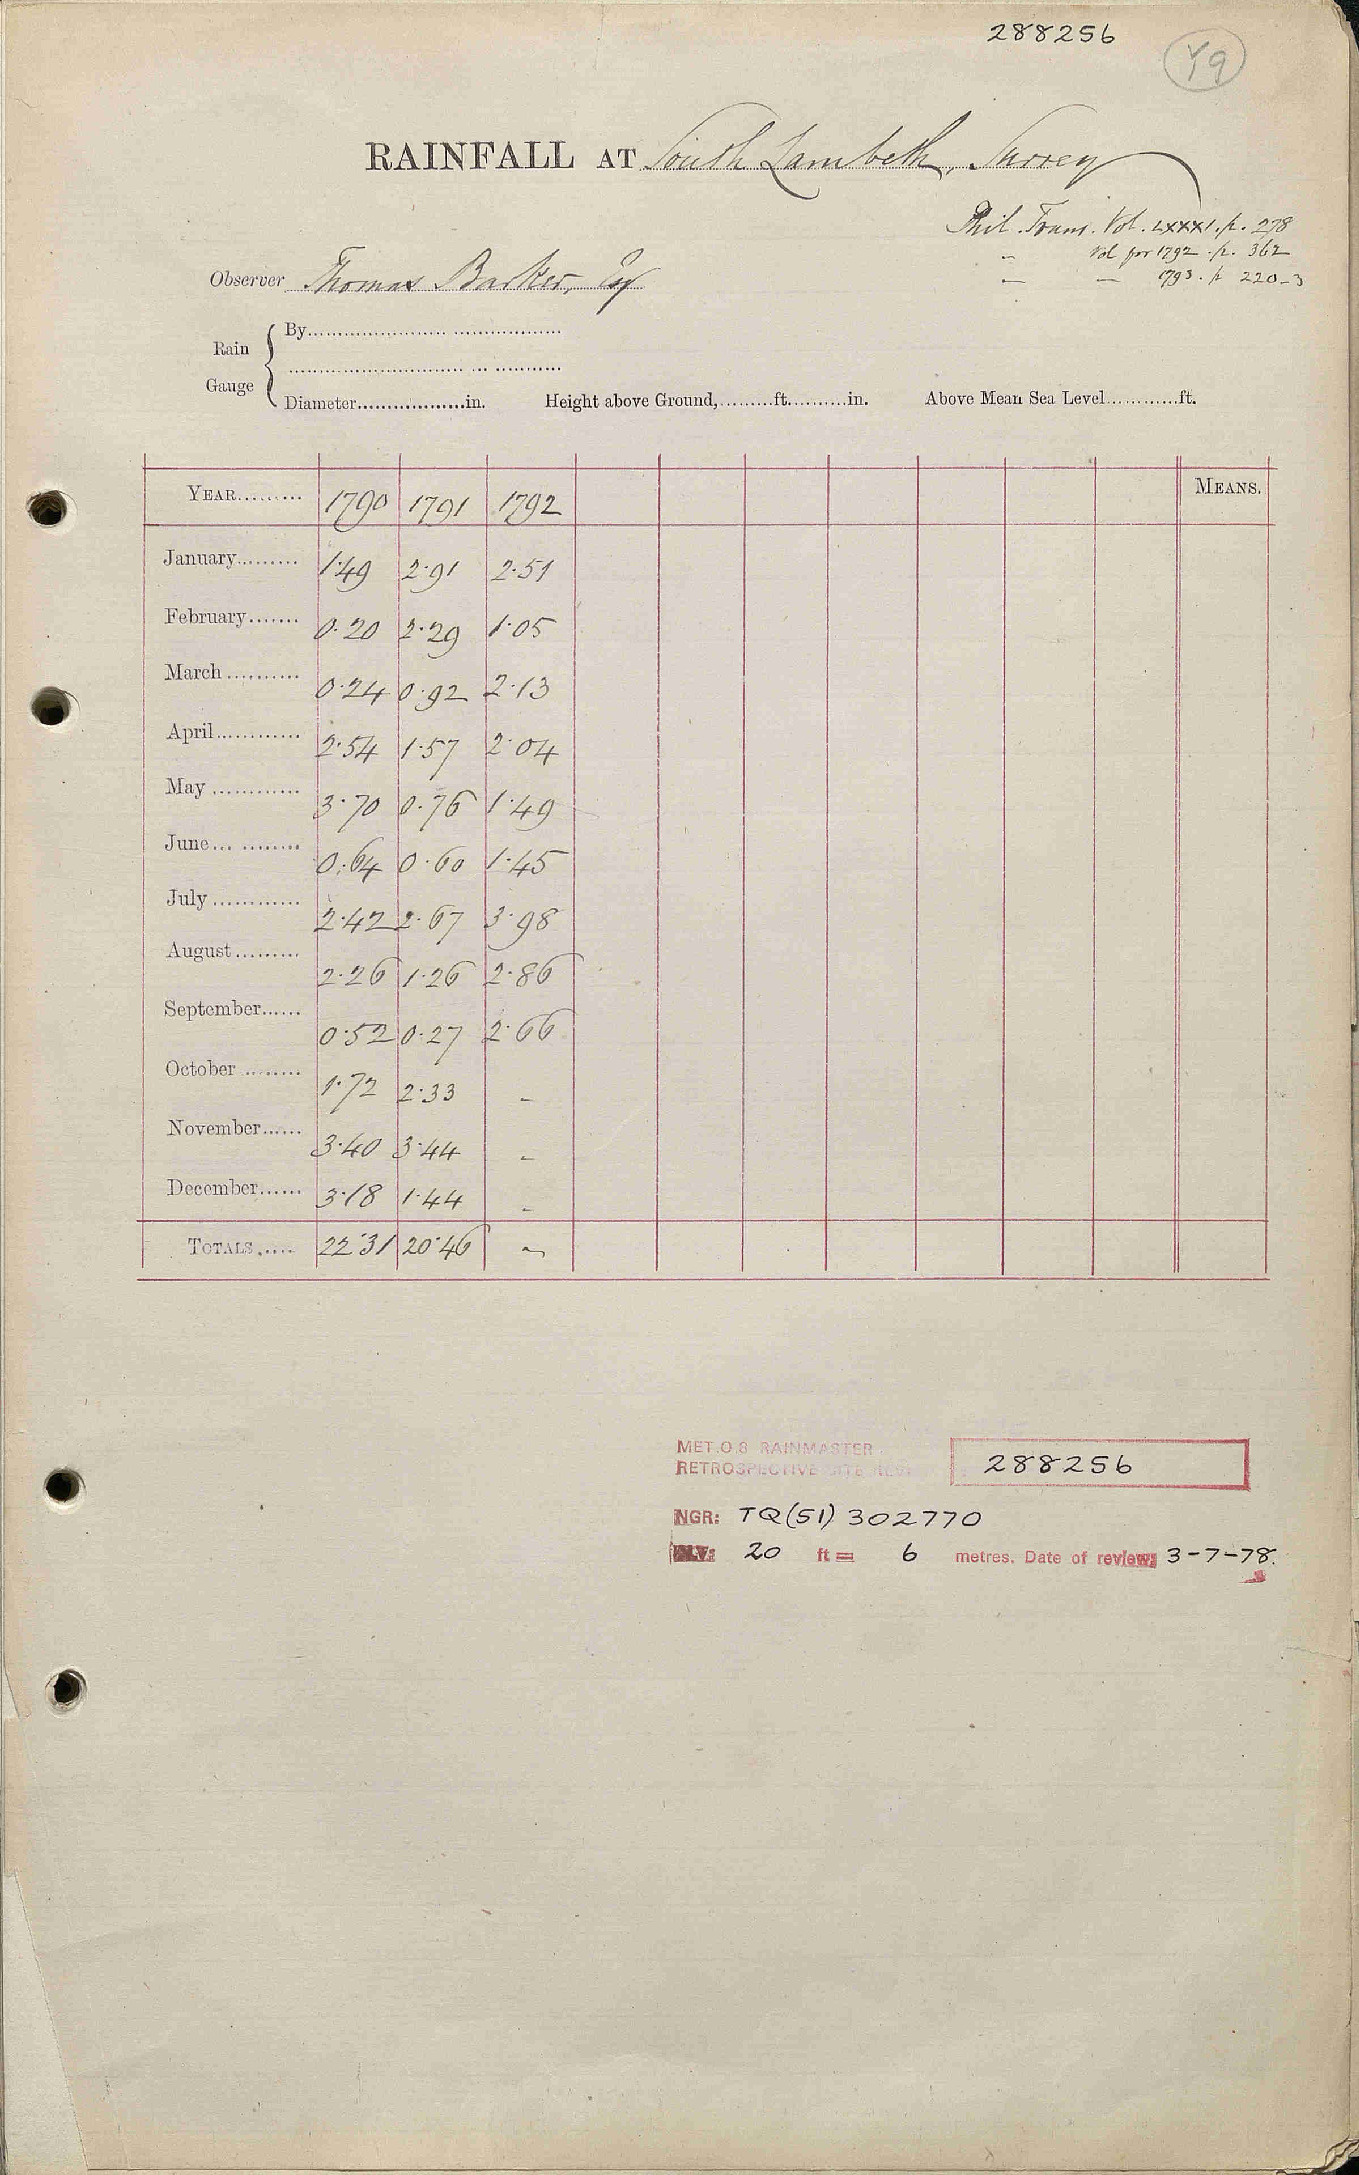 288256
Y9
RAINFALL AT South Lambeth, Surrey
Phil. Trans. Vol. LXXXI. p. 278
" Vol for 1792. p. 362
" — 1793. p 220-3
Observer Thomas Barker, Esq
Rain Gauge { By
Diameter in. Height above Ground, ft. in. Above Mean Sea Level ft.
YEAR 1790 1791 1792 MEANS.
January 1.49 2.91 2.51
February 0.20 2.29 1.05
March 0.24 0.92 2.13
April 2.54 1.57 2.04
May 3.70 0.76 1.49
June 0.64 0.60 1.45
July 2.42 2.67 3.98
August 2.26 1.26 2.86
September 0.52 0.27 2.66
October 1.72 2.33 -
November 3.40 3.44 -
December 3.18 1.44 -
TOTALS 22.31 20.46 -
MET.O.8 RAINMASTER
RETROSPECTIVE SITE 288256
NGR: TQ(51) 302770
ELV: 20 ft = 6 metres. Date of review: 3-7-78.